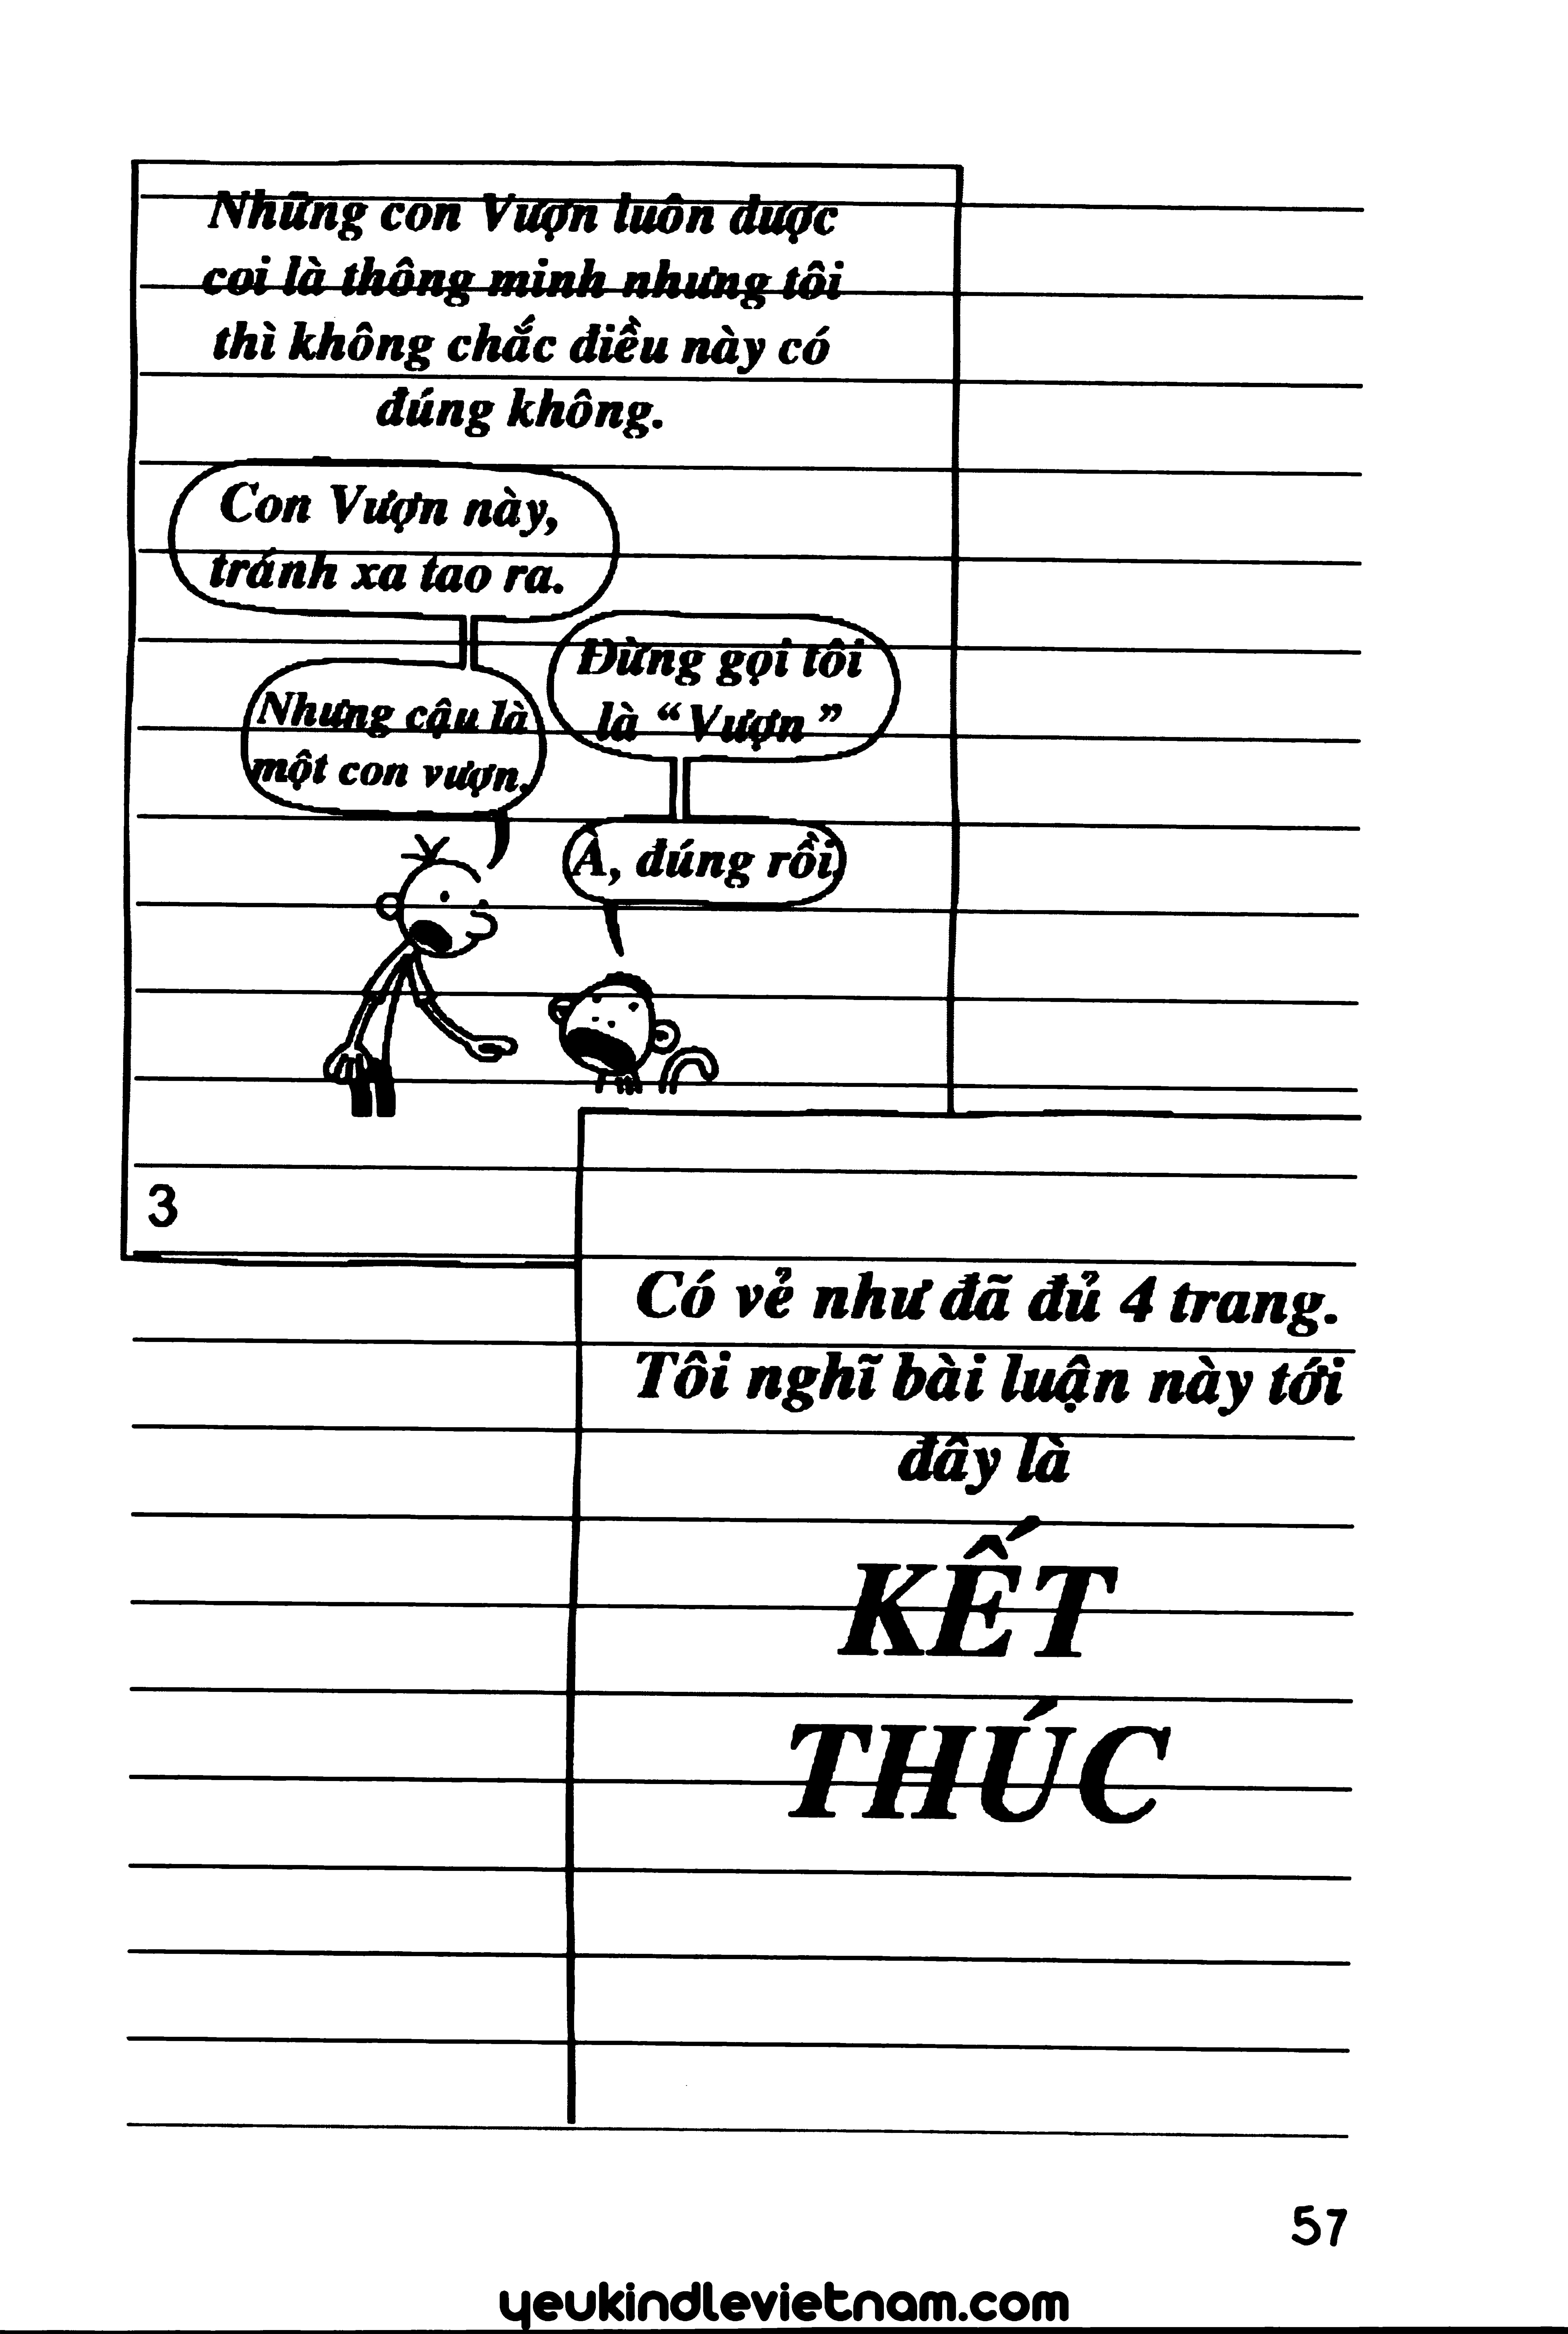 Những con Vượn luôn được
coi là thông minh nhưng tôi
thì không chắc điều này có
đúng không.
Con Vượn này,
tránh xa tao ra.
Đừng gọi tôi
là “Vượn”
Nhưng cậu là
một con vượn.
À, đúng rồi.
3
Có vẻ như đã đủ 4 trang.
Tôi nghĩ bài luận này tới
đây là
KẾT
THÚC
57
yeukindlevietnam.com